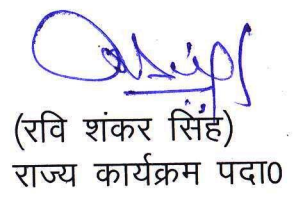 (रवि शंकर सिंह)
राज्य कार्यक्रम पदा0